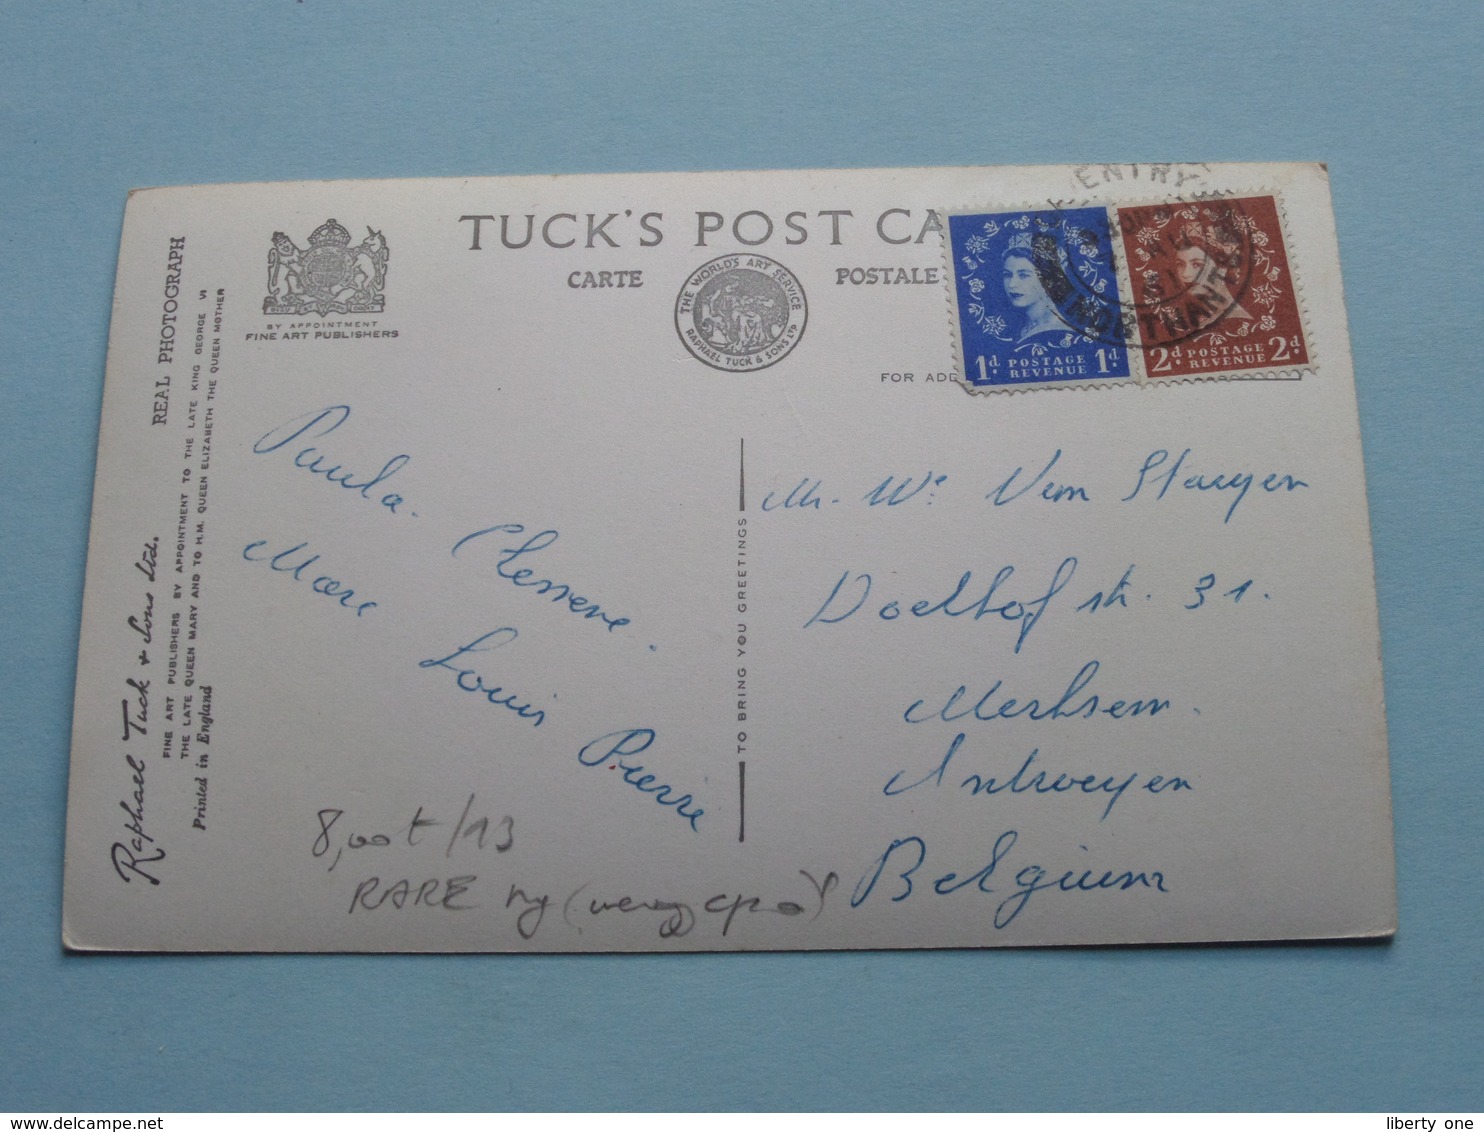 TUCK'S POST CA
CARTE POSTALE
BY APPOINTMENT
FINE ART PUBLISHERS
THE WORLD'S ART SERVICE
RAPHAEL TUCK & SONS LTD
FOR ADD
1d POSTAGE 1d
REVENUE
2d POSTAGE 2d
REVENUE
ENTRY
61
NORTHANTS
REAL PHOTOGRAPH
Raphael Tuck & Sons Ltd.
FINE ART PUBLISHERS BY APPOINTMENT TO THE LATE KING GEORGE VI
THE LATE QUEEN MARY AND TO H.M. QUEEN ELIZABETH THE QUEEN MOTHER
Printed in England
Paula.
Marc Louis Pierre
TO BRING YOU GREETINGS
Mr. We Van Stagen
Doelhof str. 31.
Merksem.
Antwerpen
Belgium
8,00 t/13
RARE
liberty one